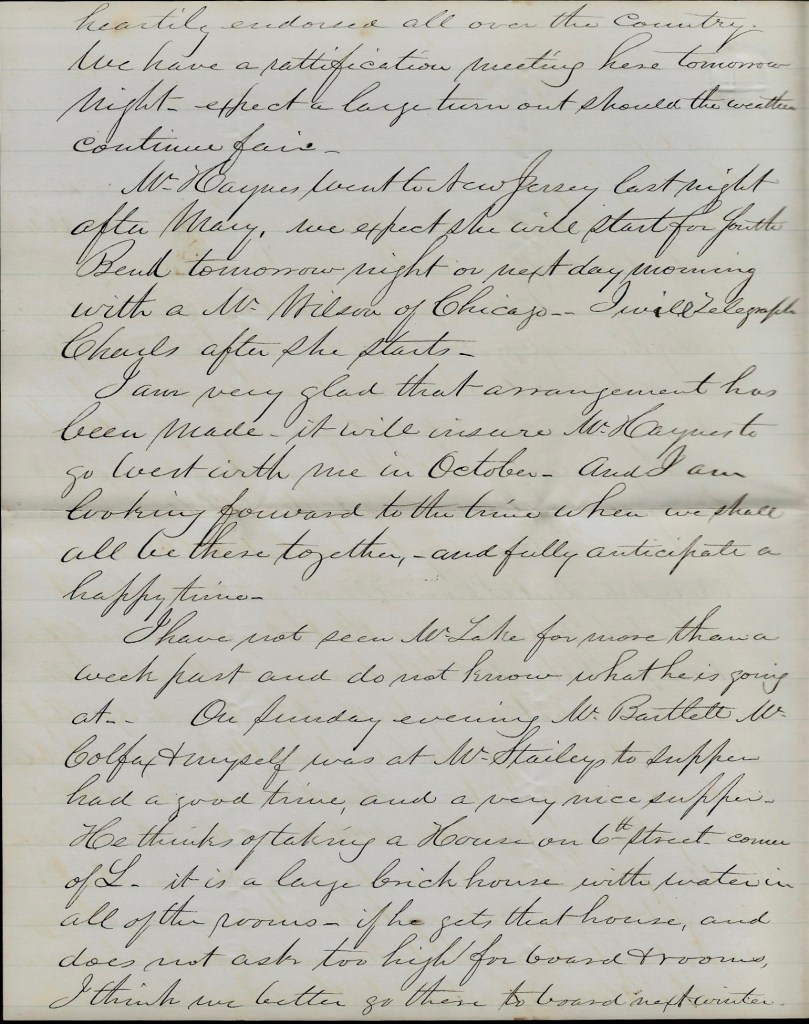 heartily endorsed all over the Country.
We have a rattification meeting here tomorrow
Night - expect a large turn out should the weather
continue fair -
Mr Haynes went to New Jersey last night
after Mary, we expect she will start for South
Bend tomorrow night or next day morning
with a Mr Wilson of Chicago -- I will Telegraph
Charls after she starts -
I am very glad that arrangement has
been made - it will insure Mr Haynes to
go West with me in October - And I am
looking forward to the time when we shall
all be there together, - and fully anticipate a
happy time -
I have not seen Mr Lake for more than a
week past and do not know what he is going
at - - On Sunday evening Mr Bartlett Mr
Colfax & myself was at Mr Staileys to supper
had a good time, and a very nice supper -
He thinks of taking a House on 6th Street - corner
of L - it is a large brick house with water in
all of the rooms - if he gets that house, and
does not ask too high for board & rooms,
I think we better go there to board next winter -